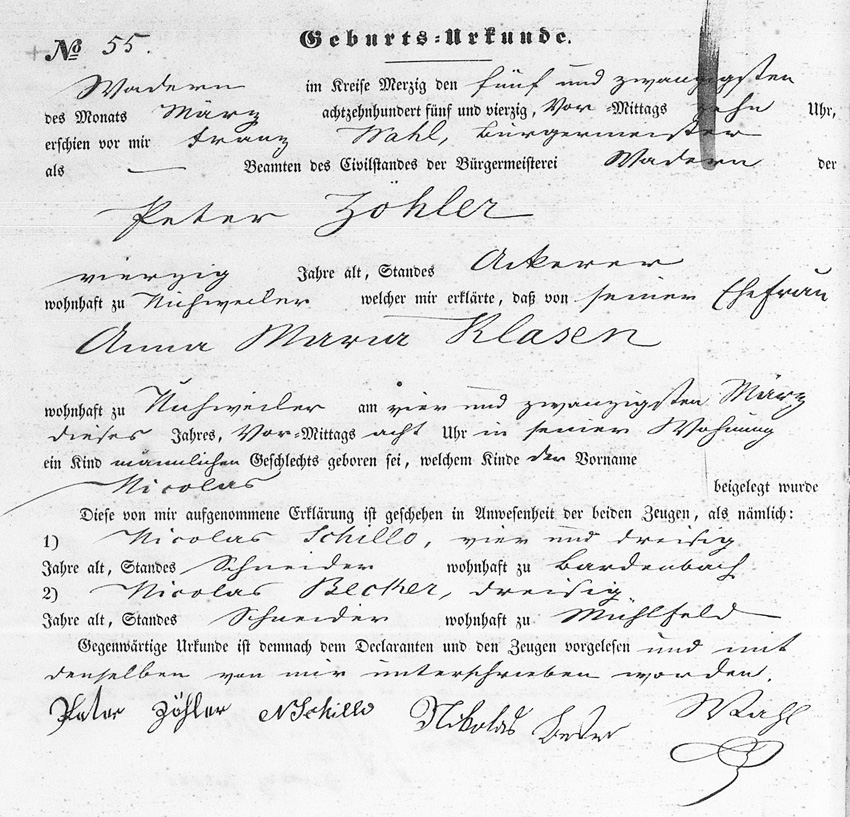 No 55. Geburts-Urkunde.
Wadern im Kreise Merzig den fünf und zwanzigsten
des Monats März achtzehnhundert fünf und vierzig, Vor-Mittags zehn Uhr,
erschien vor mir Franz Wahl, Bürgermeister
als — Beamten des Civilstandes der Bürgermeisterei Wadern der
Peter Zöhler
vierzig Jahre alt, Standes Ackerer
wohnhaft zu Nuhweiler welcher mir erklärte, daß von seiner Ehefrau
Anna Maria Klasen
wohnhaft zu Nuhweiler am vier und zwanzigsten März
dieses Jahres, Vor-Mittags acht Uhr in seiner Wohnung
ein Kind männlichen Geschlechts geboren sei, welchem Kinde der Vorname
Nicolas beigelegt wurde
Diese von mir aufgenommene Erklärung ist geschehen in Anwesenheit der beiden Zeugen, als nämlich:
1) Nicolas Schillo, vier und dreisig
Jahre alt, Standes Schneider wohnhaft zu Bardenbach
2) Nicolas Becker, dreisig
Jahre alt, Standes Schneider wohnhaft zu Mühlfeld
Gegenwärtige Urkunde ist demnach dem Declaranten und den Zeugen vorgelesen und mit
denselben von mir unterschrieben worden.
Peter Zöhler NSchillo Nikolas Becker Wahl